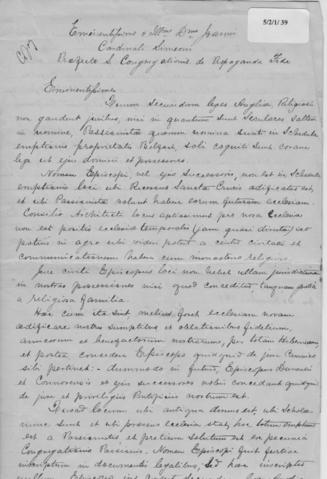 5/2/1/39
Eminentissimo & Illmo Dno Joanni
Cardinali Simeoni
Praefecto S. Congregationis de Propaganda Fide
Eminentissime
Quum secundum leges Angliae, Religiosi
non gaudent juribus, nisi in quantum sunt seculares saltem
in nomine, Passionistae quorum nomina sunt in Schedula
emptionis proprietatis Belfast, soli cogniti sunt coram
lege ut ejus domini et possessores.
Nomen Episcopi vel ejus successoris, non est in Schedula
emptionis loci ubi Recessus Sanctae Crucis aedificatus est,
et ubi Passionistae volunt habere eorum futuram ecclesiam.
Consilio Architecti locus aptissimus pro nova Ecclesia
non est positio ecclesiae temporalis (jam quasi dirutae) sed
potius in agro ubi videri potest a centro civitatis et
communicationem habere cum monasterio religioso.
Jure civili Episcopus loci non habet ullam jurisdictionem
in nostras possessiones nisi quod conceditur
a religiosa familia.
Hac cum ita sint, melius foret ecclesiam novam
aedificare nostris sumptibus et oblationibus fidelium,
amicorum et benefactorum nostrorum, per totam Hiberniam,
et postea concedere Episcopo quidquid de jure
sibi pertineat: - dummodo in futuro, Episcopus Dunensis
et Connorensis et ejus successores nobis concedant quidquid
de jure et privilegiis Pontificiis nostrum est.
Quoad locum ubi antiqua domus est, ubi Schola
nunc sunt et ubi processus ecclesia stat, hoc totum emptum
est a Passionistis, et pretium solutum est ex pecunia
Congregationis Passionis. Nomen Episcopi fuit
inscriptum in documentis legalibus, sed haec inscriptio